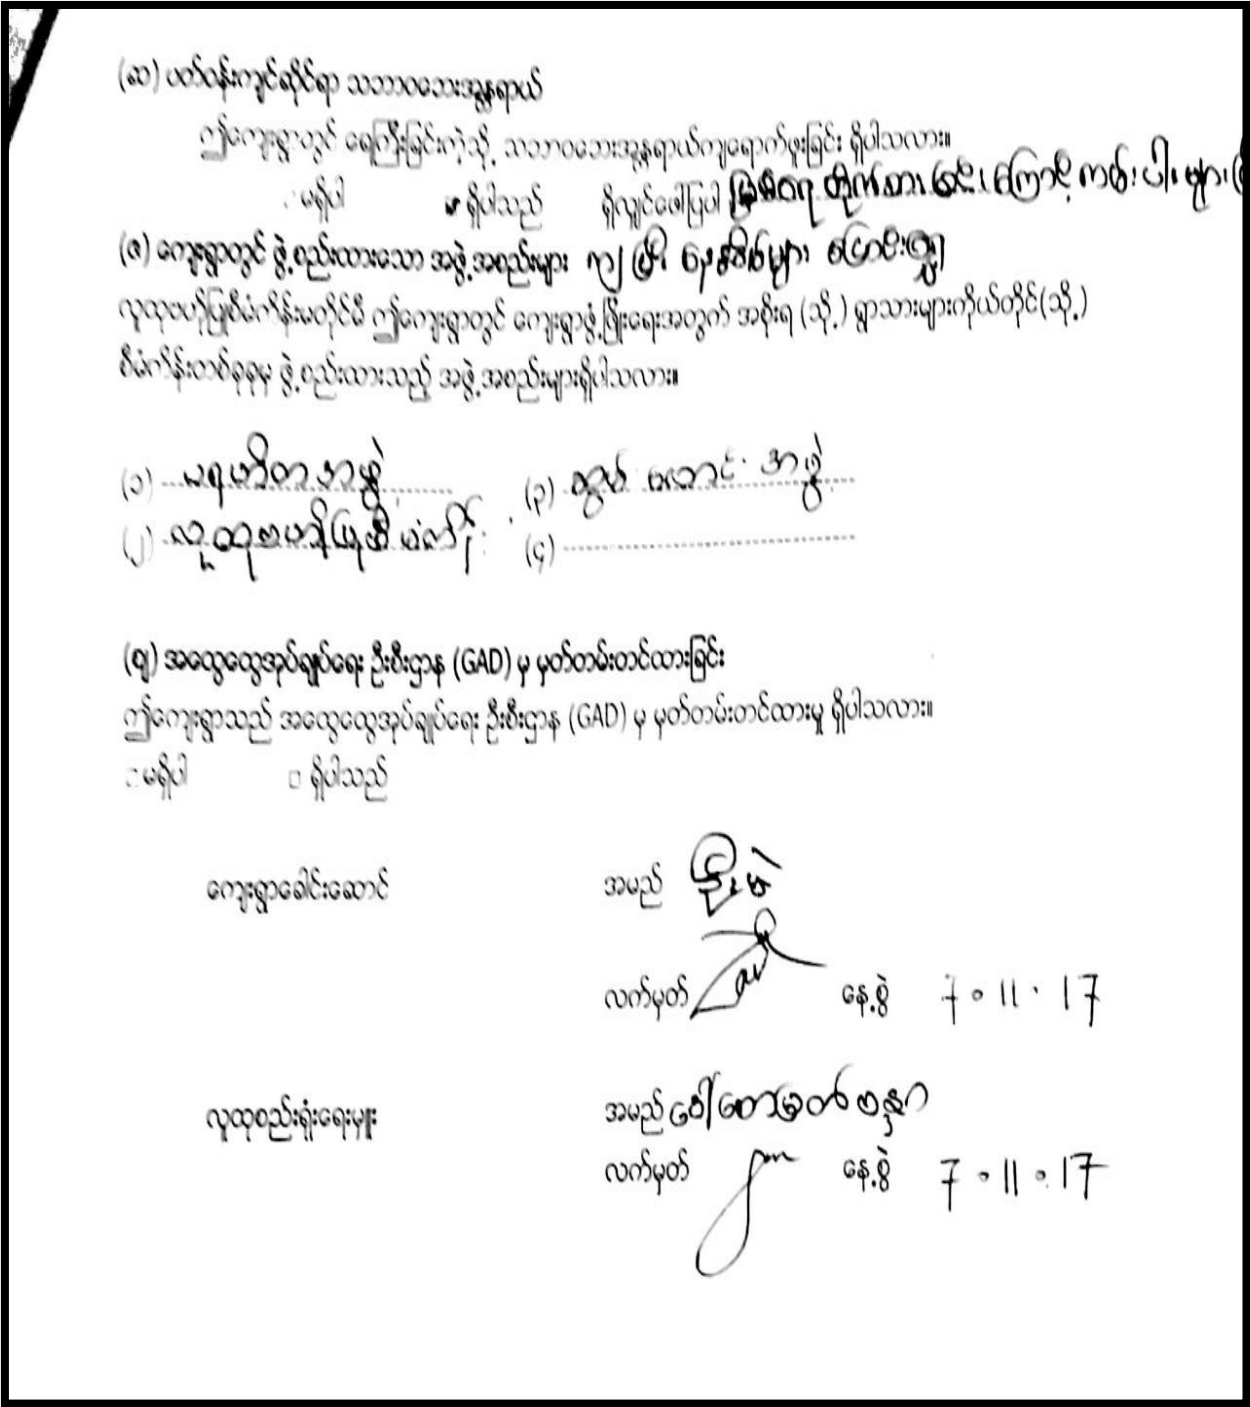 (ဆ) ပတ်ဝန်းကျင်ဆိုင်ရာ သဘာဝဘေးအန္တရာယ်
ဤကျေးရွာတွင် ရေကြီးခြင်းကဲ့သို့ သဘာဝဘေးအန္တရာယ်ကျရောက်ဖူးခြင်း ရှိပါသလား။
မရှိပါ ရှိပါသည် ရှိလျှင်ဖော်ပြပါ မြစ်ရေ တိုက်စား ကြောင့် ကမ်းပါးများ
(ဇ) ကျေးရွာတွင် ဖွဲ့စည်းထားသော အဖွဲ့အစည်းများ ကျ၍ ပြောင်းရွှေ့
လူထုဗဟိုပြုစီမံကိန်းမတိုင်မီ ဤကျေးရွာတွင် ကျေးရွာဖွံ့ဖြိုးရေးအတွက် အစိုးရ (သို့) ရွာသားများကိုယ်တိုင်(သို့)
စီမံကိန်းတစ်ခုခုမှ ဖွဲ့စည်းထားသည့် အဖွဲ့အစည်းများရှိပါသလား။
(၁) ပရဟိတအဖွဲ့ (၃) အဖွဲ့
(၂) လူထုဗဟိုပြုစီမံကိန်း (၄)
(ဈ) အထွေထွေအုပ်ချုပ်ရေး ဦးစီးဌာန (GAD) မှ မှတ်တမ်းတင်ထားခြင်း
ဤကျေးရွာသည် အထွေထွေအုပ်ချုပ်ရေး ဦးစီးဌာန (GAD) မှ မှတ်တမ်းတင်ထားမှု ရှိပါသလား။
မရှိပါ □ ရှိပါသည်
ကျေးရွာခေါင်းဆောင် အမည် ဦးမဲ
လက်မှတ် နေ့စွဲ 7.11.17
လူထုစည်းရုံးရေးမှူး အမည် ဒေါ်စောမြတ်ဗန္ဓု
လက်မှတ် နေ့စွဲ 7.11.17